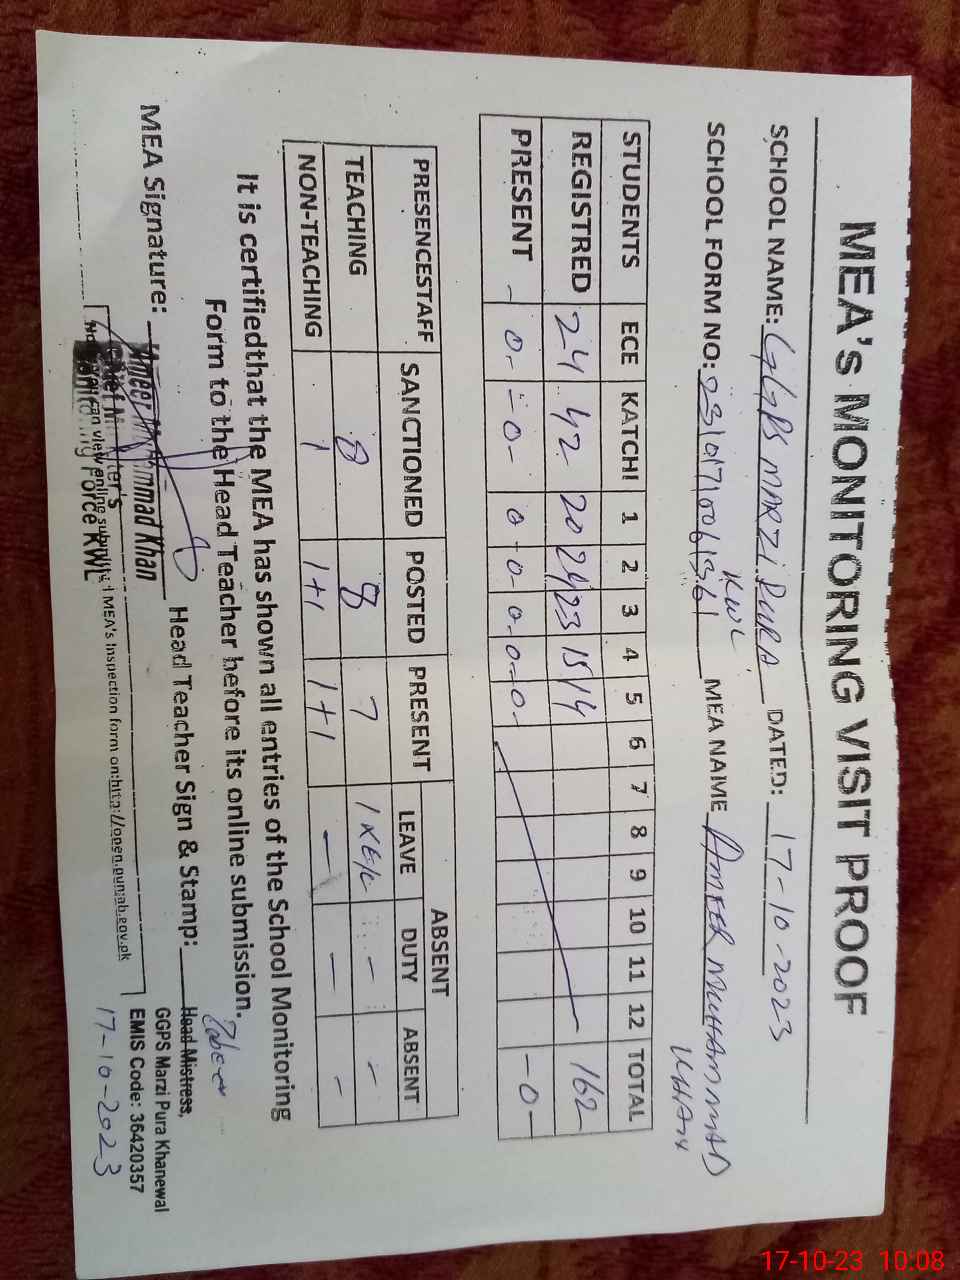 MEA's MONITORING VISIT PROOF
SCHOOL NAME: GGPS MARZI PURA KWL DATED: 17-10-2023
SCHOOL FORM NO: MEA NAME AMEER MUHAMMAD KHAN
STUDENTS ECE KATCHI 1 2 3 4 5 6 7 8 9 10 11 12 TOTAL
REGISTRED 24 42 20 24 23 15 14 162
PRESENT -0- -0- -0- -0- -0- -0- -0- -0-
PRESENCESTAFF SANCTIONED POSTED PRESENT ABSENT
LEAVE DUTY ABSENT
TEACHING 8 8 7 1 - -
NON-TEACHING 1 1+1 1+1 - - -
It is certifiedthat the MEA has shown all entries of the School Monitoring
Form to the Head Teacher before its online submission.
MEA Signature: Head Teacher Sign & Stamp:
Ameer Muhammad Khan
Chief Minister's
Monitoring Force KWL
can view online submitted MEA's Inspection form on:http://open.punjab.gov.pk
Head Mistress,
GGPS Marzi Pura Khanewal
EMIS Code: 36420357
17-10-2023
17-10-23 10:08